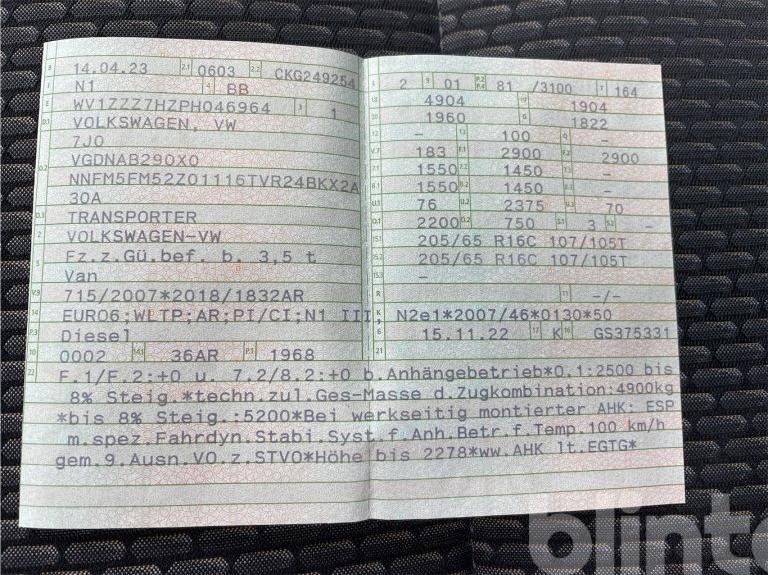 B 14.04.23 2.1 0603 2.2 CKG249254
J N1 4 BB
E WV1ZZZ7HZPH046964 3 1
D.1 VOLKSWAGEN, VW
7J0
D.2 VGDNAB290X0
NNFM5FM52Z01116TVR24BKX2A
30A
D.3 TRANSPORTER
2 VOLKSWAGEN-VW
5 Fz.z.Gü.bef. b. 3,5 t
Van
V.9 715/2007*2018/1832AR
14 EURO6;WLTP;AR;PI/CI;N1 III;
P.3 Diesel
10 0002 14.1 36AR P.1 1968
L 2 9 01 P.2 P.4 81 /3100 T 164
18 4904 19 1904
20 1960 G 1822
12 – 13 100 Q –
V.7 183 F.1 2900 F.2 2900
7.1 1550 7.2 1450 7.3 –
8.1 1550 8.2 1450 8.3 –
U.1 76 U.2 2375 U.3 70
O.1 2200 O.2 750 S.1 3 S.2 –
15.1 205/65 R16C 107/105T
15.2 205/65 R16C 107/105T
15.3 –
R 11 –/–
K N2e1*2007/46*0130*50
6 15.11.22 17 K 16 GS375331
21
22 F.1/F.2:+0 u. 7.2/8.2:+0 b.Anhängebetrieb*O.1:2500 bis
8% Steig.*techn.zul.Ges-Masse d.Zugkombination:4900kg
*bis 8% Steig.:5200*Bei werkseitig montierter AHK: ESP
m.spez.Fahrdyn.Stabi.Syst.f.Anh.Betr.f.Temp.100 km/h
gem.9.Ausn.VO.z.STVO*Höhe bis 2278*ww.AHK lt.EGTG*